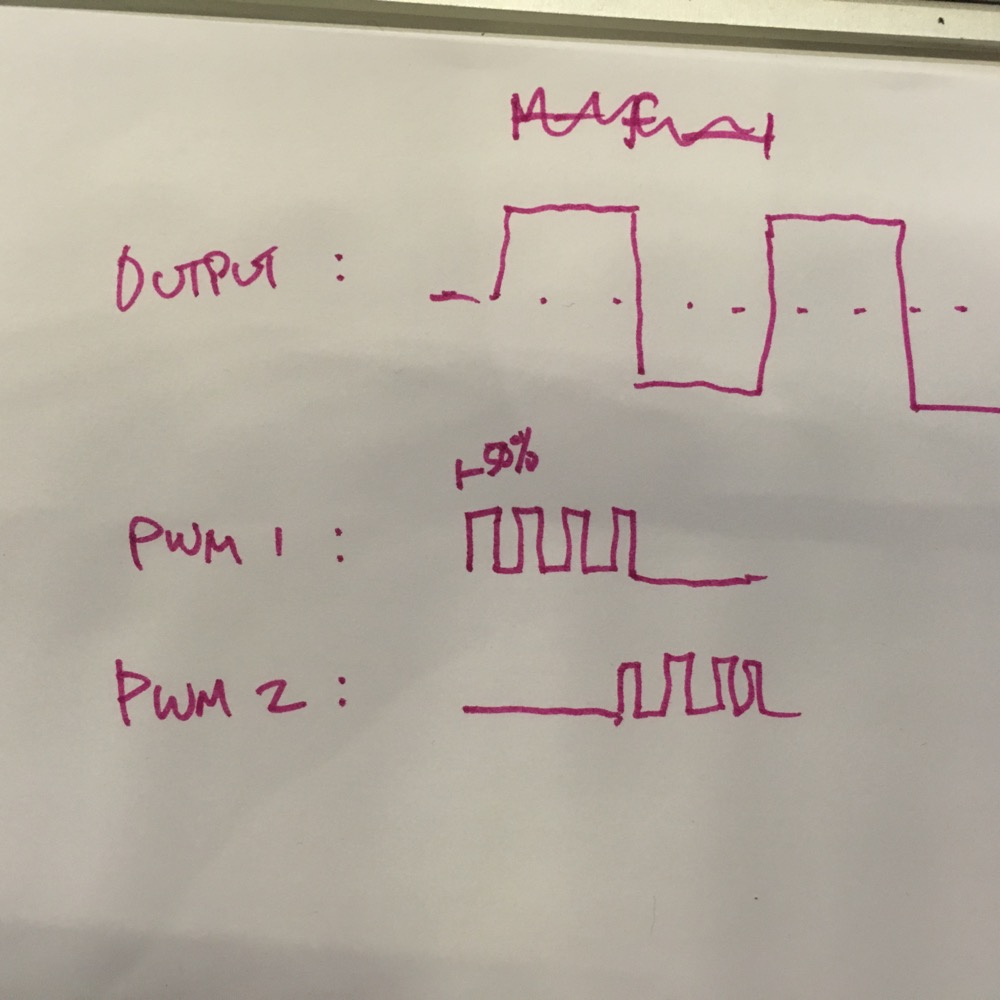 OUTPUT :
50%
PWM 1 :
PWM 2 :